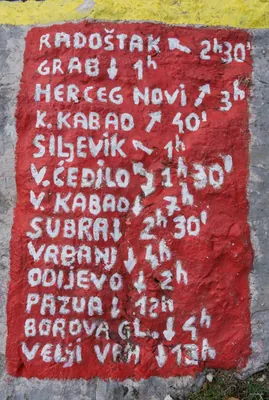 RADOŠTAK ↖ 2h30'
GRAB ↓ 1h
HERCEG NOVI ↗ 3h
K. KABAO ↗ 40'
SILJEVIK ↖ 1h
V. ČEDILO ↓ 1h30'
V. KABAO ↓ 7h
SUBRA ↓ 2h30'
VRBANJ ↓ 4h
ODIJEVO ↓
PAZUA ↓ 12h
BOROVA GL. ↓ 4h
VELJI VRH ↓ 13h